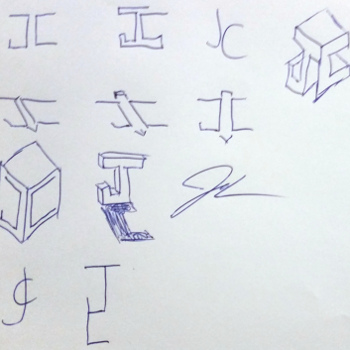 JC JC JC JC
JC JC JC
JC JC
JC JC